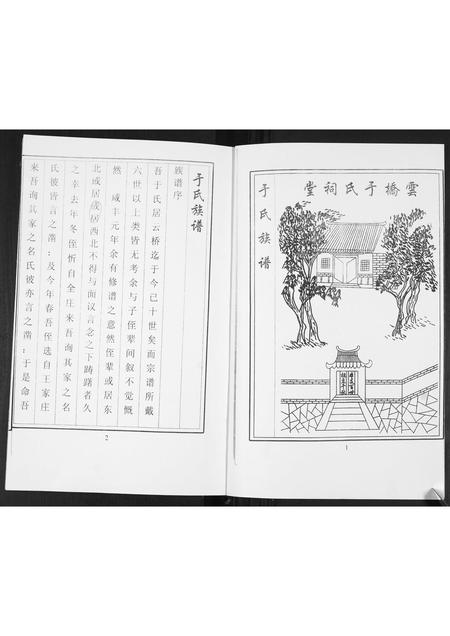 雲橋于氏祠堂
于氏族谱
1
于氏族谱
族谱序
吾于氏居云桥迄于今已十世矣而宗谱所戴
六世以上类皆无考余与子侄辈间叙不觉慨
然　咸丰元年余有修谱之意然侄辈或居东
北或居或居西北不得与面议言念之下踌躇者久
之幸去年冬侄忻自全庄来吾询其家之名
氏彼皆言之凿；及今年春吾侄选自王家庄
来吾询其家之名氏彼亦言之凿；于是命吾
2